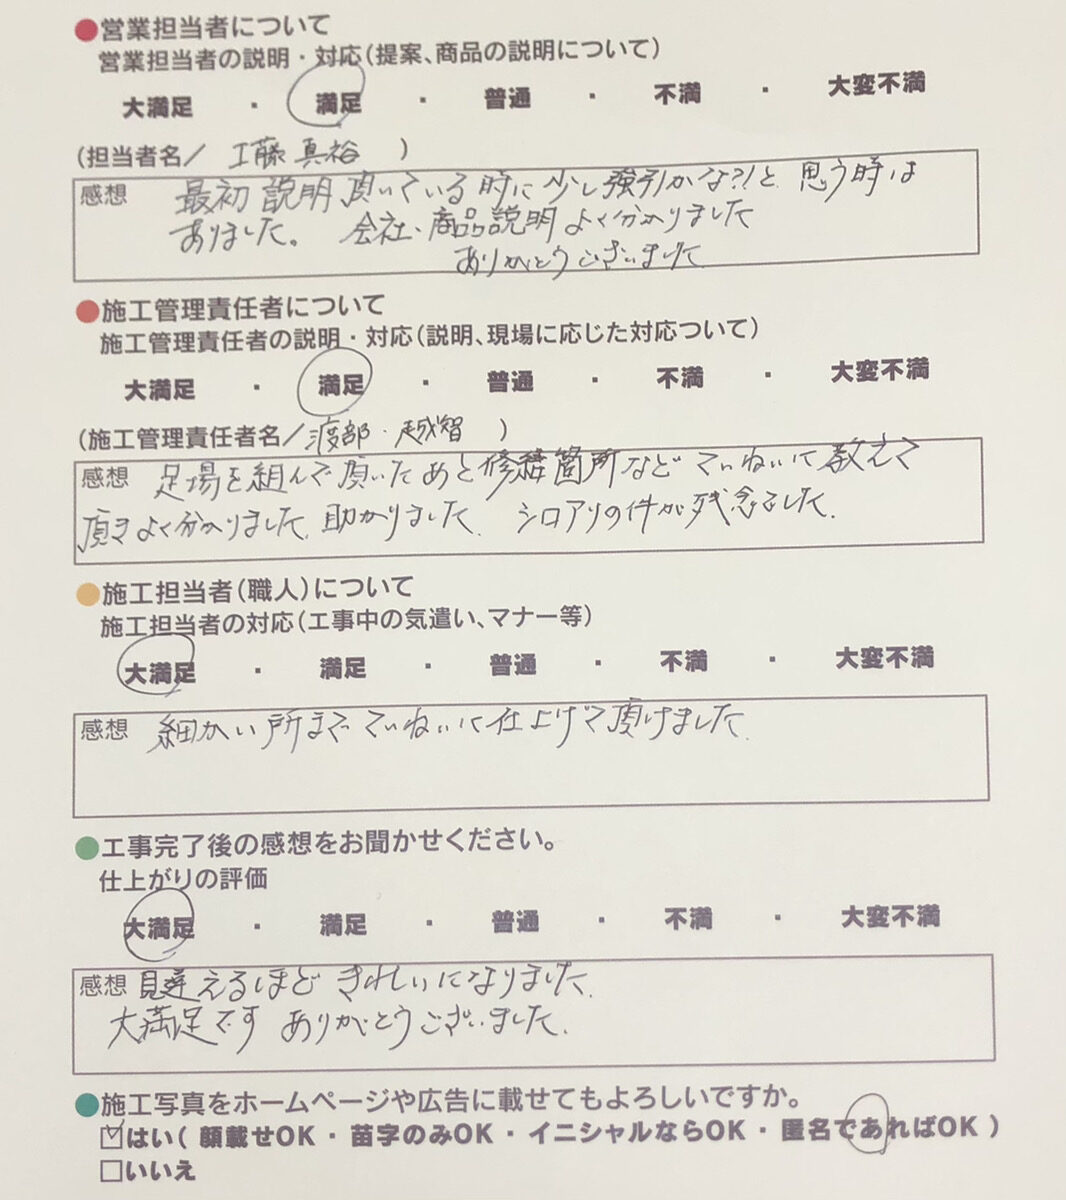 ●営業担当者について
営業担当者の説明・対応(提案、商品の説明について)
大満足 ・ 満足 ・ 普通 ・ 不満 ・ 大変不満
(担当者名/ 工藤 真裕 )
感想 最初 説明 頂いている時に 少し強引かな?!と 思う時は
ありました。 会社、商品説明 よく分かりました
ありがとうございました
●施工管理責任者について
施工管理責任者の説明・対応(説明、現場に応じた対応ついて)
大満足 ・ 満足 ・ 普通 ・ 不満 ・ 大変不満
(施工管理責任者名/ 渡部・越智 )
感想 足場を組んで頂いたあと修繕箇所など ていねいに教えて
頂き よく分かりました。助かりました。 シロアリの件が残念でした。
●施工担当者(職人)について
施工担当者の対応(工事中の気遣い、マナー等)
大満足 ・ 満足 ・ 普通 ・ 不満 ・ 大変不満
感想 細かい所まで ていねいに仕上げて頂けました。
●工事完了後の感想をお聞かせください。
仕上がりの評価
大満足 ・ 満足 ・ 普通 ・ 不満 ・ 大変不満
感想 見違えるほど きれいになりました。
大満足です ありがとうございました。
●施工写真をホームページや広告に載せてもよろしいですか。
☑はい( 顔載せOK ・ 苗字のみOK ・ イニシャルならOK ・ 匿名であればOK )
□いいえ